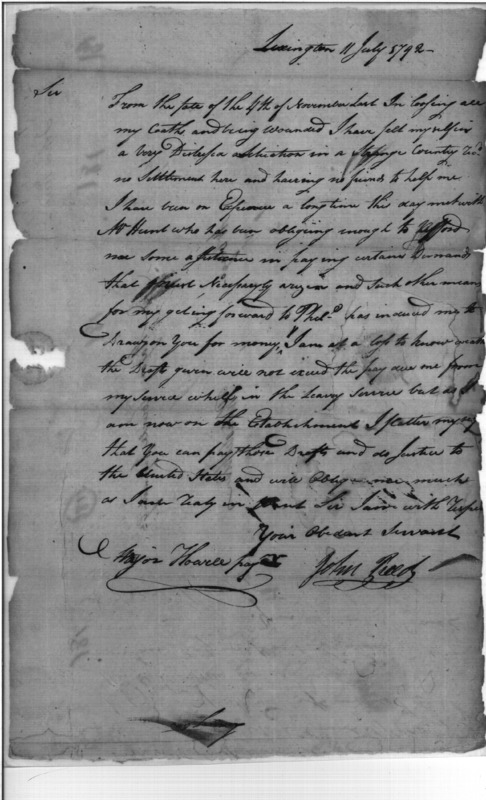 Lexington 11 July 1792
Sir
From the fate of the 4th of November last In loosing all
my Cloath and being wounded I have felt my self in
a very Distress a situation in a Strange Country
no Settlement here and having no friends to help me
I have been on Expence a long time this day met with
Mr Hunt who has been obliging enough to afford
me some assistance in paying certain Demand
that Necessaryly and Such other means
for my geting forward to Phila. has induced me to
Draw on You for money, I am at a loss to know
the Draft given will not exced the pay due me from
my Service whilst in the Leavy Service but as I
am now on the Establishment I flatter my self
that You can pay those Drafts and do Justice to
the United States and will Oblige me much
as I am in Sir I am with
Your Obedient Servant
John Reed
Major Howell pay